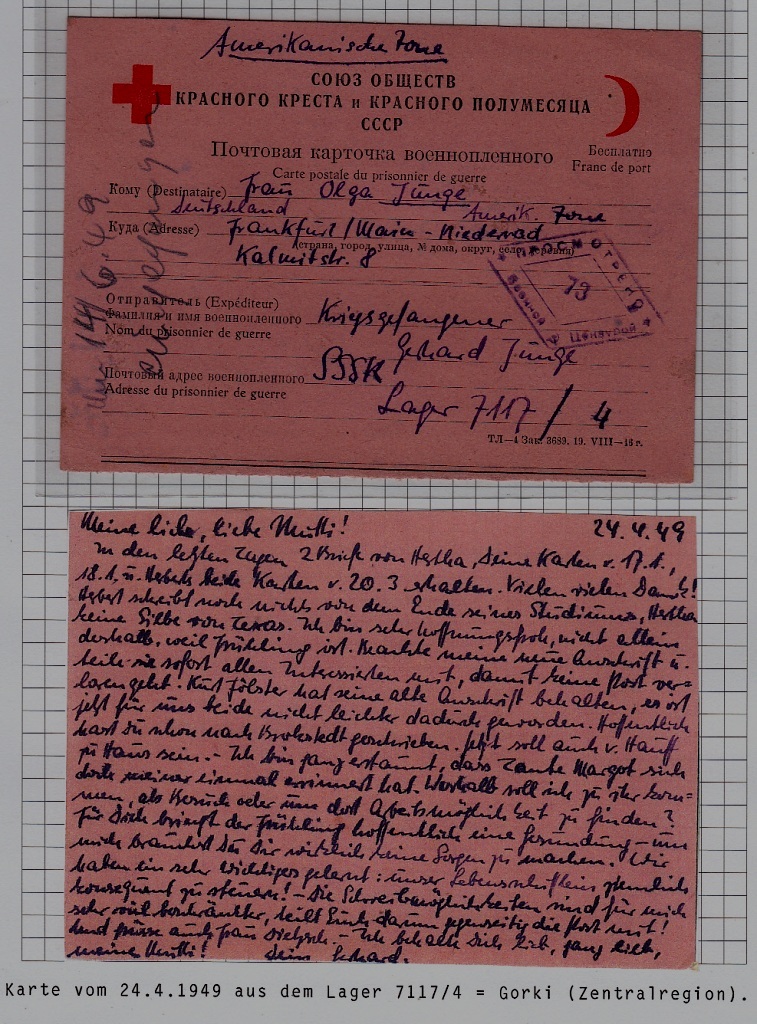 Amerikanische Zone
СОЮЗ ОБЩЕСТВ
КРАСНОГО КРЕСТА и КРАСНОГО ПОЛУМЕСЯЦА
СССР
Почтовая карточка военнопленного
Бесплатно
Carte postale du prisonnier de guerre
Franc de port
Кому (Destinataire) Frau Olga Jünge
Deutschland Amerik. Zone
Куда (Adresse) Frankfurt/Main-Niederrad
(страна, город, улица, № дома, округ, село, деревня)
Kalmitstr. 8
ПРОСМОТРЕНО
73
Военной Цензурой
Отправитель (Expéditeur)
Фамилия и имя военнопленного Kriegsgefangener
Nom du prisonnier de guerre
Gerhard Jünge
Почтовый адрес военнопленного
Adresse du prisonnier de guerre
Lager 7117/4
ТЛ—4 Зак. 3683. 19. VIII—46 г.
14/6.49
Meine liebe, liebe Mutti! 24.4.49
In den letzten Tagen 2 Briefe von Hertha, Deine Karten v. 17.1.,
18.1. u. Herberts beide Karten v. 20.3 erhalten. Vielen vielen Dank!
Herbert schreibt noch nichts von dem Ende seines Studiums, Hertha
keine Silbe von Texas. Ich bin sehr hoffnungsfroh, nicht allein
deshalb, weil Frühling ist. Beachte meine neue Anschrift u.
teile sie sofort allen Interessierten mit, damit keine Post ver=
loren geht. Kurt Fölster hat seine alte Anschrift behalten, es ist
jetzt für uns beide nicht leichter dadurch geworden. Hoffentlich
hast Du schon nach Brokstedt geschrieben. Jetzt soll auch v. Hauff
zu Haus sein. - Ich bin ganz erstaunt, dass Tante Margot sich
doch meiner einmal erinnert hat. Weshalb soll ich zu ihr kom=
men, als Besuch oder um dort Arbeitsmöglichkeit zu finden?
Für Dich bringt der Frühling hoffentlich eine Gesundung - um
mich brauchst Du Dir wirklich keine Sorgen zu machen. Wir
haben ein sehr wichtiges gelernt: unser Lebensschifflein ziemlich
konsequent zu steuern! - Die Schreibmöglichkeiten sind für mich
sehr viel beschränkter, teilt Euch darum gegenseitig die Post mit!
Und grüsse auch Frau - Ich behalte Dich lieb, ganz lieb,
meine Mutti! Dein Gerhard.
Karte vom 24.4.1949 aus dem Lager 7117/4 = Gorki (Zentralregion).